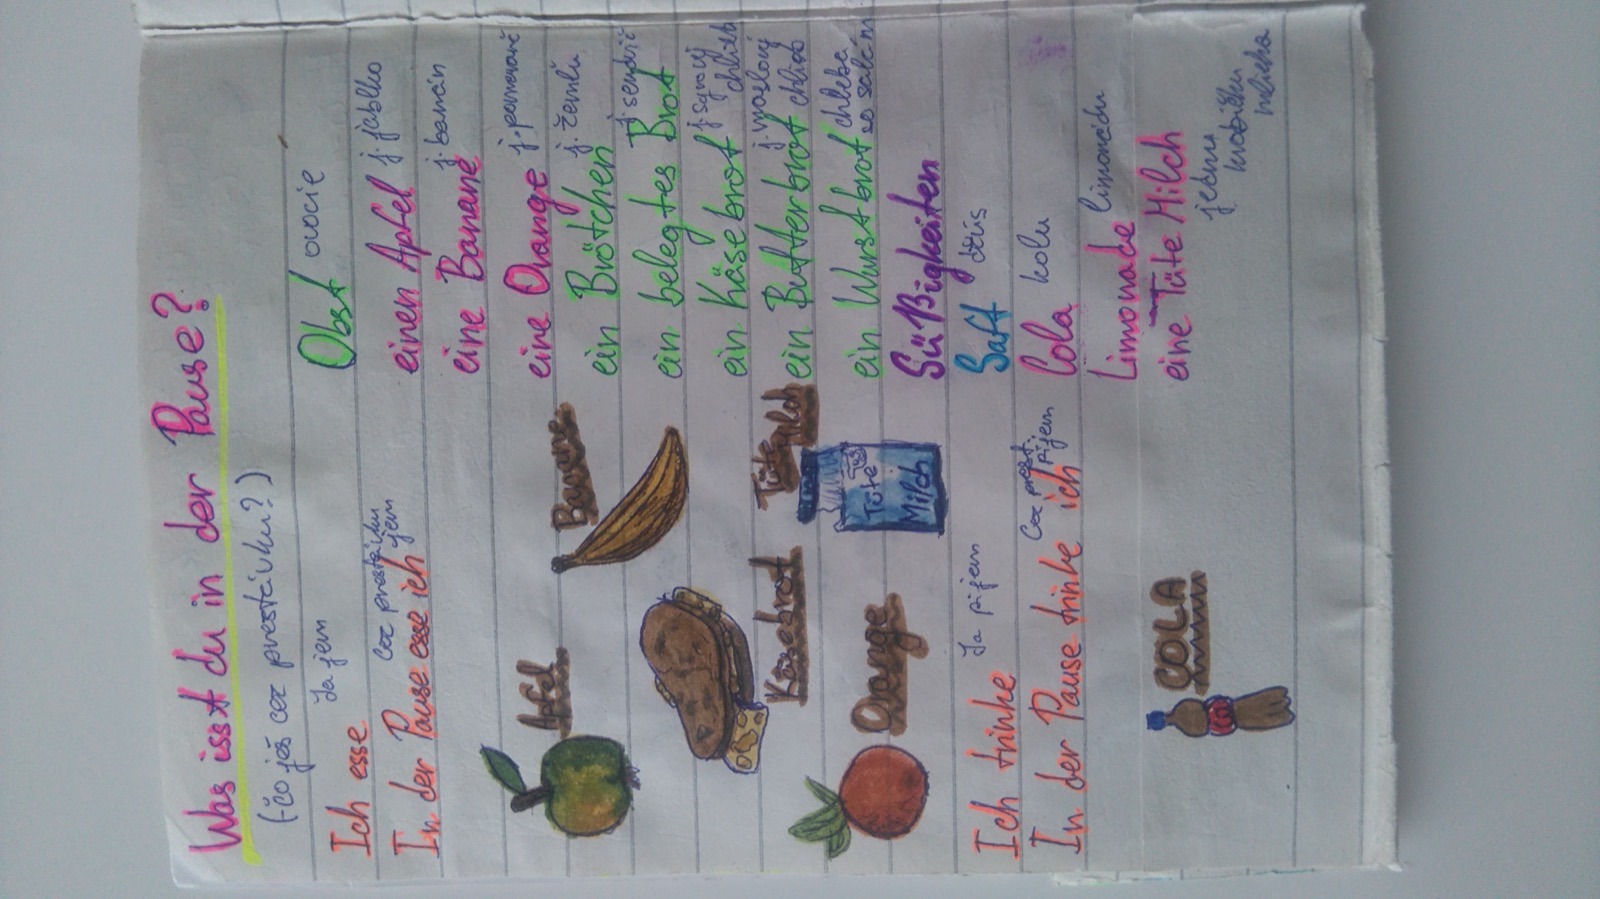 Was isst du in der Pause?
(-čo ješ cez prestávku?)
Obst ovocie
Ja jem
Ich esse
einen Apfel j. jablko
Cez prestávku jem
In der Pause esse ich
eine Banane j. banán
eine Orange j. pomaranč
Apfel
Banane
ein Brötchen j. žemľu
ein belegtes Brot j. sendvič
ein Käsebrot j. syrový chlieb
Käsebrot
Tüte Milch
ein Butterbrot j. maslový chlieb
Tüte
Milch
ein Wurstbrot chleba so salámom
Orange
Süßigkeiten
Ja pijem
Saft džús
Ich trinke
Cez prest. pijem
Cola kolu
In der Pause trinke ich
Limonade limonádu
eine Tüte Milch
jednu krabičku mlieka
COLA